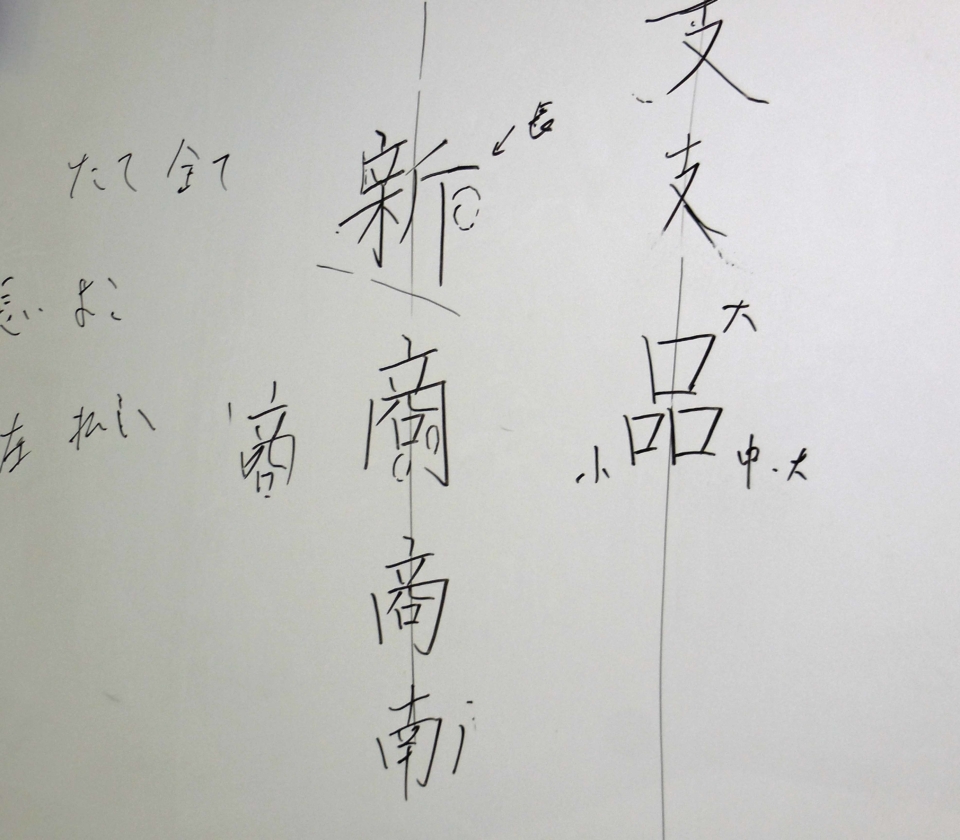 支
支
品
大
小
中.大
新
長
商
商
南
商
たて 全て
急い よこ
左 払い